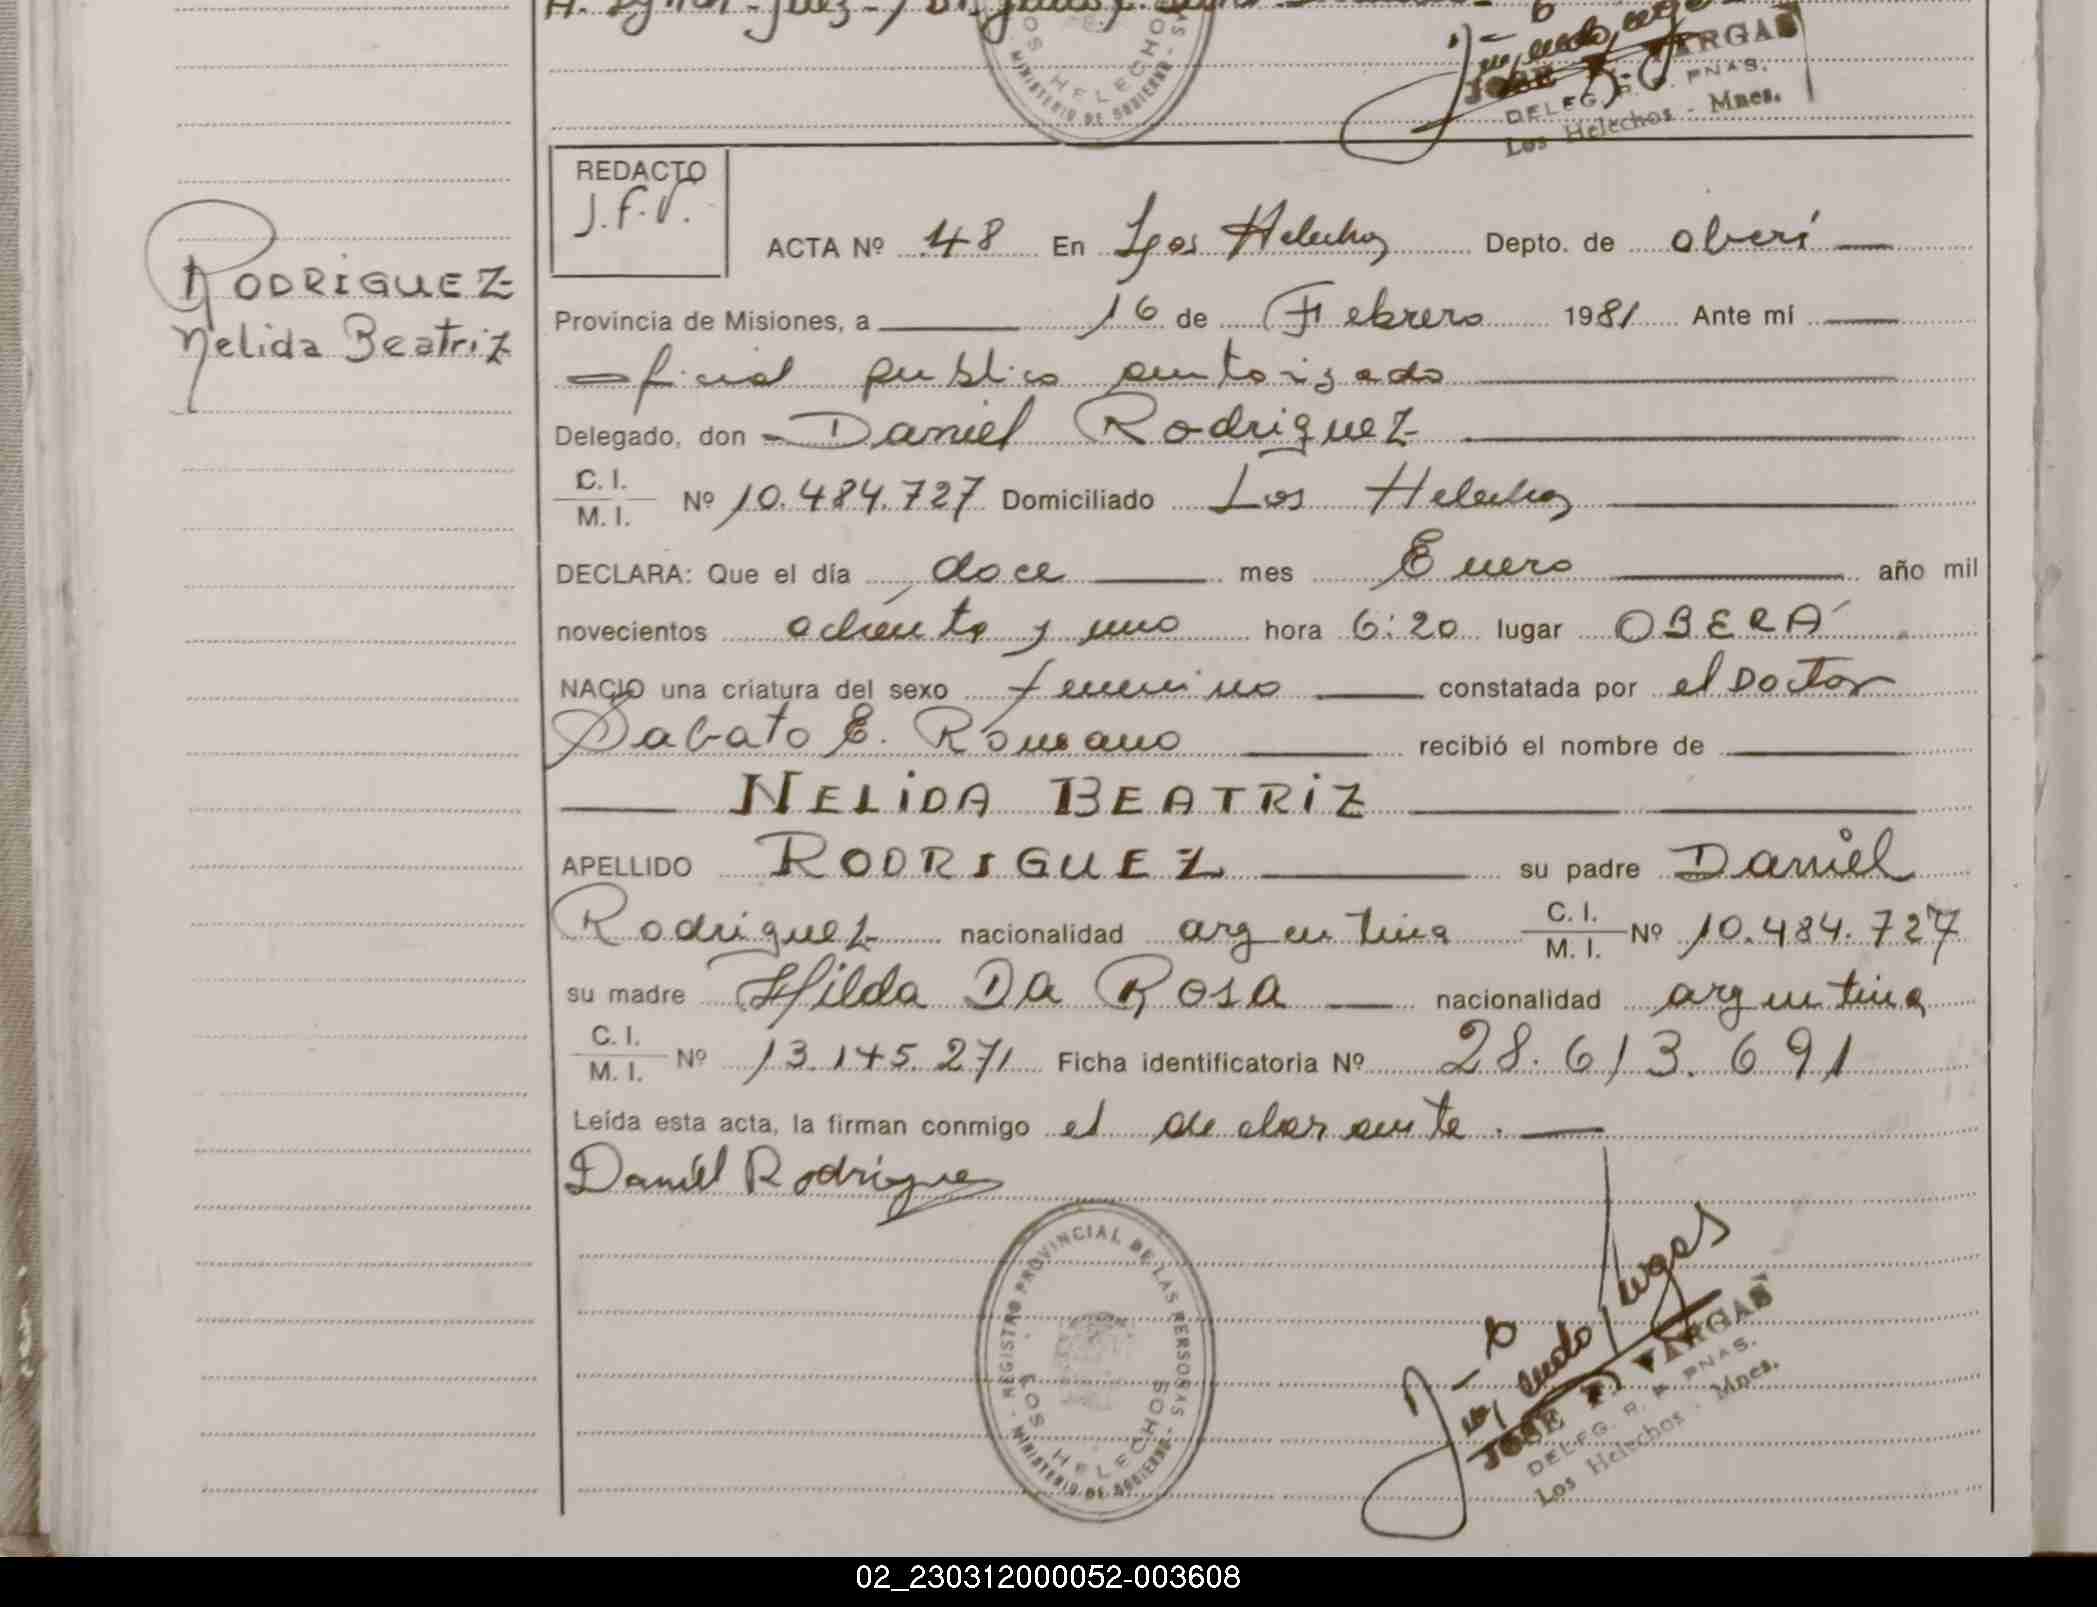 REDACTO
J.F.V.
ACTA Nº 48 En Los Helechos Depto. de oberá
RODRIGUEZ
Nelida Beatriz
Provincia de Misiones, a 16 de Febrero 1981 Ante mí
oficial publico autorizado
Delegado, don Daniel Rodriguez
C. I.
M. I. Nº 10.484.727 Domiciliado Los Helechos
DECLARA: Que el día doce mes Enero año mil
novecientos ochenta y uno hora 6:20 lugar OBERÁ
NACIO una criatura del sexo femenino constatada por el Doctor
Sabato E. Romano recibió el nombre de
NELIDA BEATRIZ
APELLIDO RODRIGUEZ su padre Daniel
Rodriguez nacionalidad argentina C. I. M. I. Nº 10.484.727
su madre Hilda DA ROSA nacionalidad argentina
C. I.
M. I. Nº 13.145.271 Ficha identificatoria Nº 28.613.691
Leída esta acta, la firman conmigo el declarante.
Daniel Rodriguez
REGISTRO PROVINCIAL DE LAS PERSONAS
LOS HELECHOS
MINISTERIO DE GOBIERNO
JOSE F. VARGAS
DELEG. R. P. PNAS.
Los Helechos - Mnes.
02_230312000052-003608